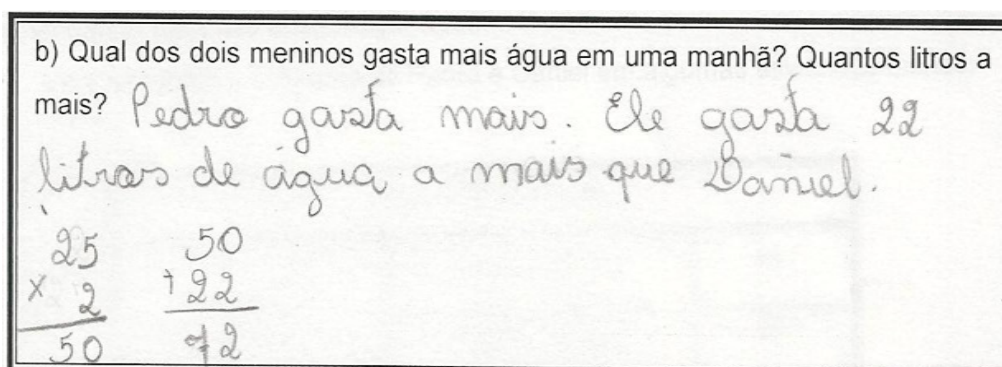 b) Qual dos dois meninos gasta mais água em uma manhã? Quantos litros a
mais? Pedro gasta mais. Ele gasta 22
litros de água a mais que Daniel.
25 50
x 2 + 22
50 72